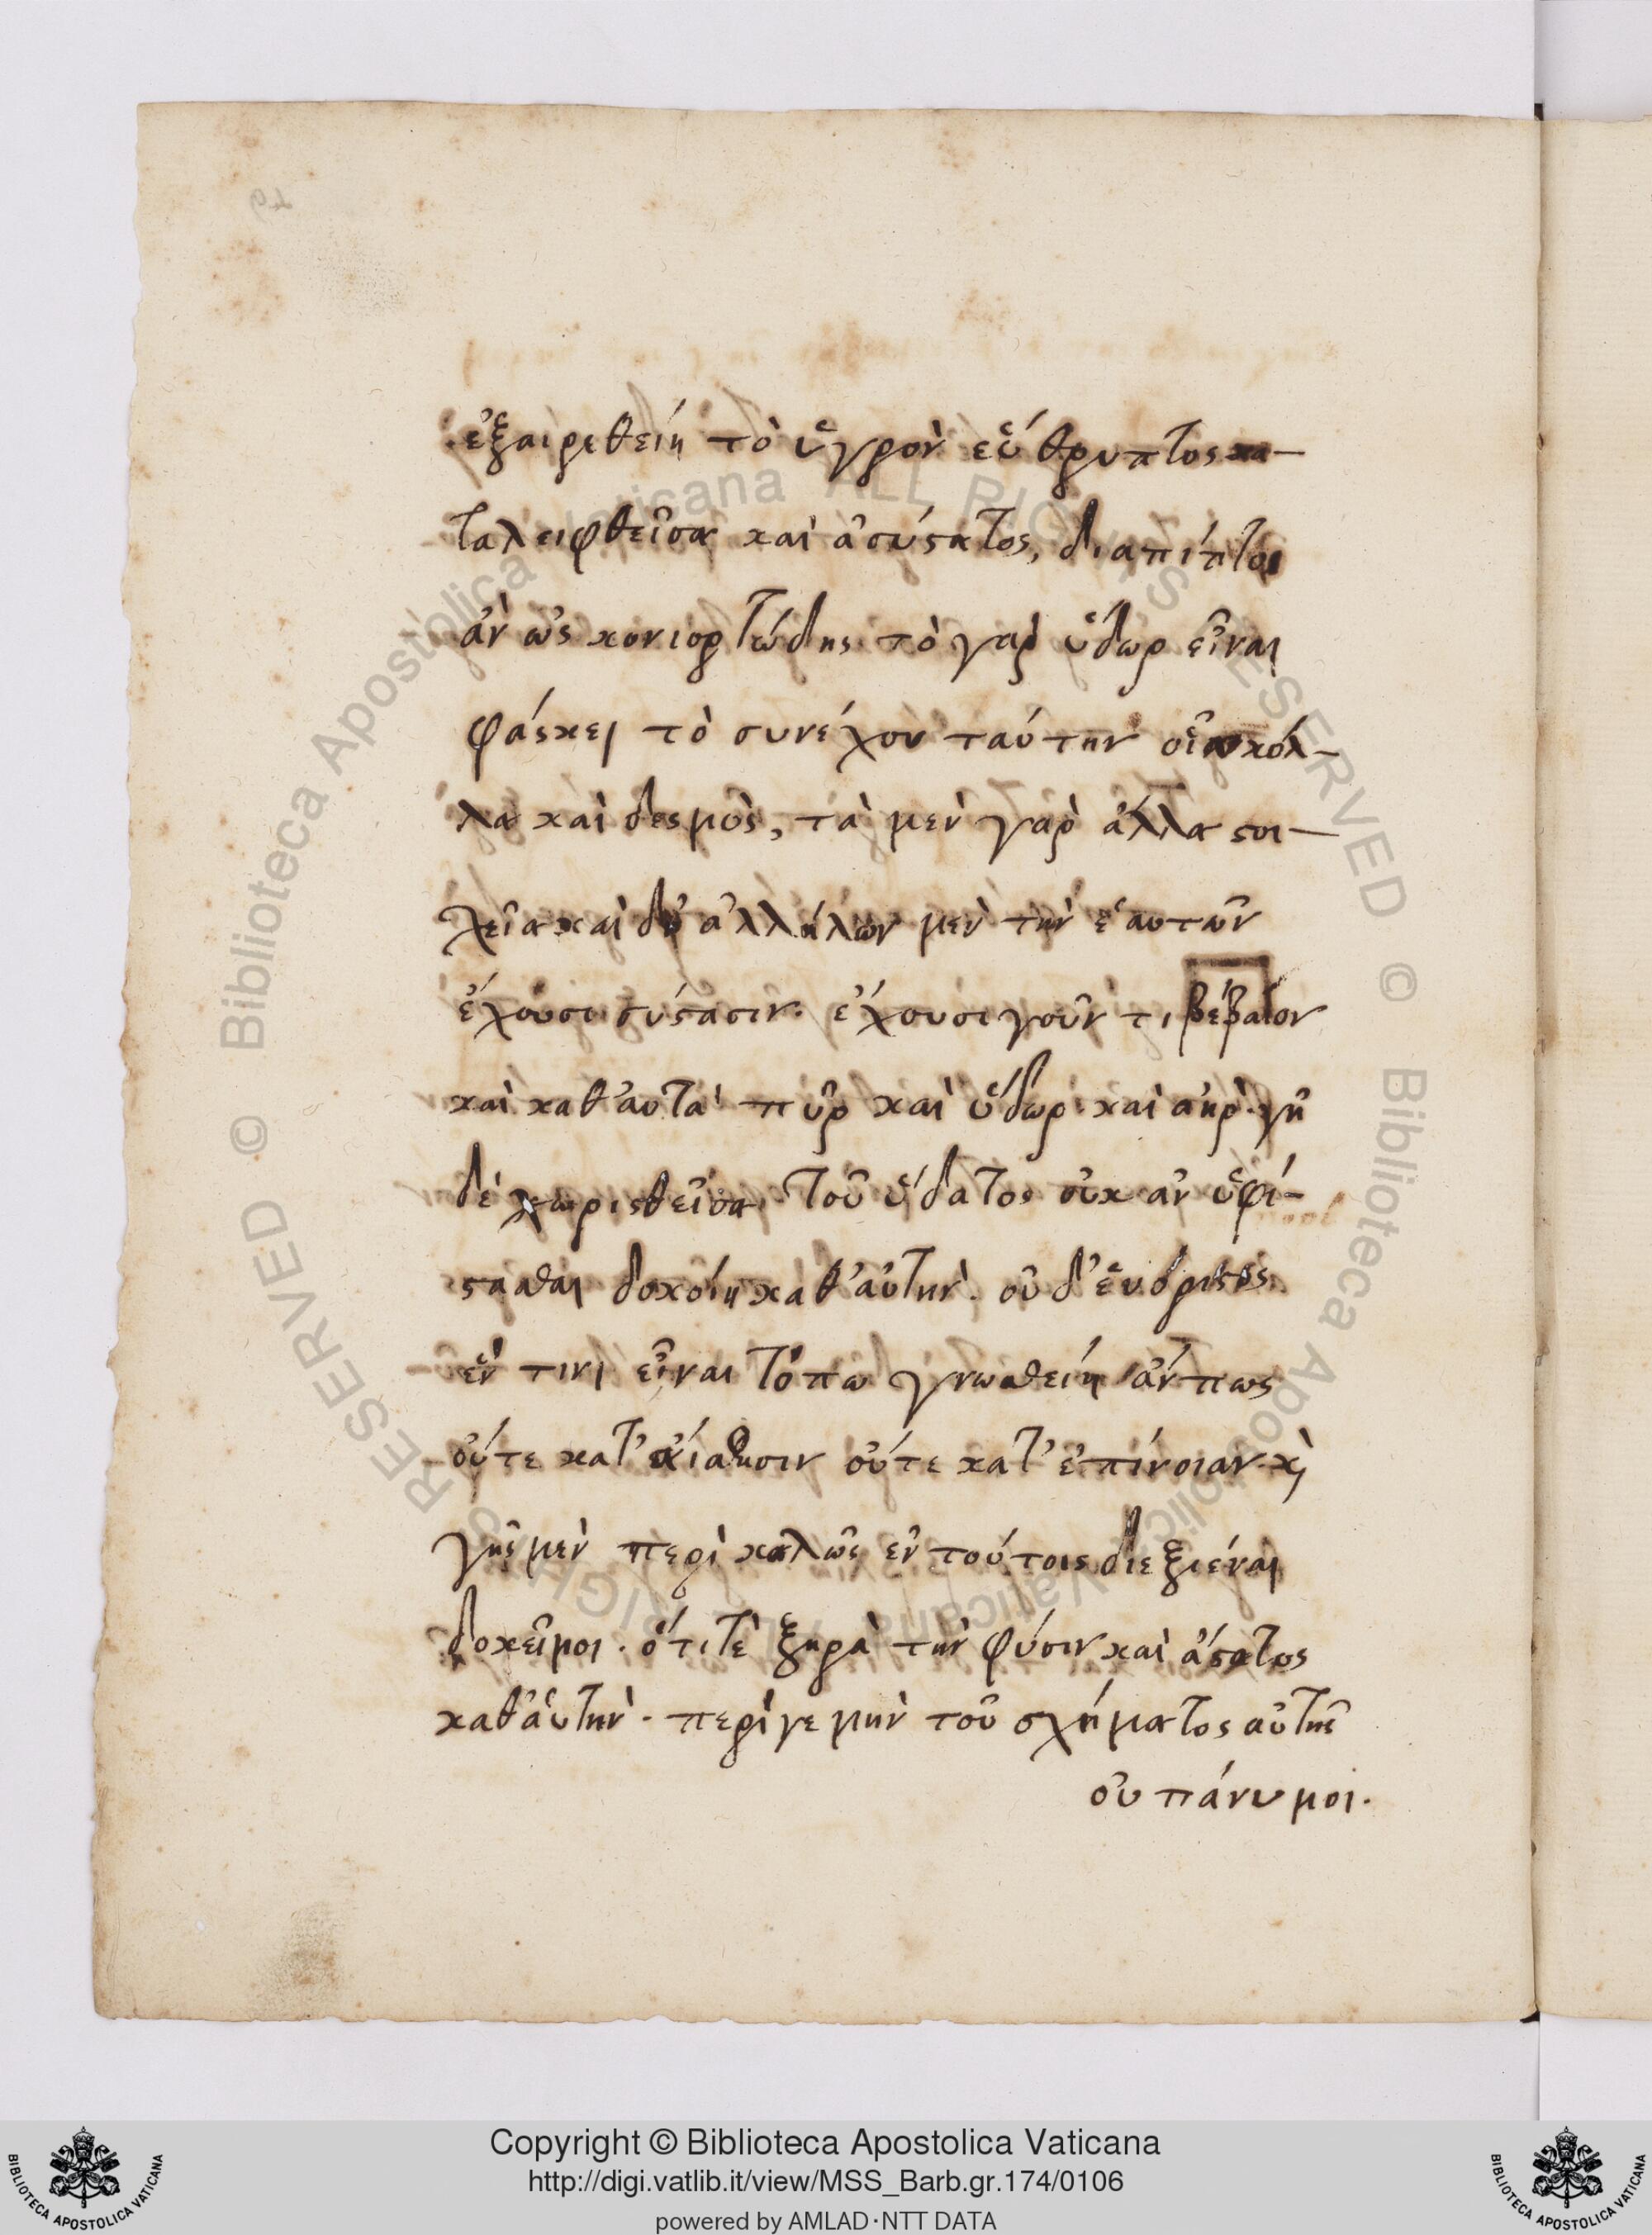 ἐξαιρεθείη τὸ ὑγρὸν εὔθρυπτος κα-
ταλειφθεῖσα καὶ ἀσύστατος, διαπίπτοι
ἂν ὡς κονιορτώδης· τὸ γὰρ ὕδωρ εἶναι
φάσκει τὸ συνέχον ταύτην οἷα κόλ-
λα καὶ δεσμὸς, τὰ μὲν γὰρ ἄλλα στοι-
χεῖα καὶ δι' ἀλλήλων μὲν τὴν ἑαυτῶν
ἔχουσι σύστασιν· ἔχουσι γοῦν τι βέβαιον
καὶ καθ' αὑτὰ πῦρ καὶ ὕδωρ καὶ ἀήρ· γῆ
δὲ χωρισθεῖσα τοῦ ὕδατος οὐκ ἂν ὑφί-
στασθαι δοκοίη καθ' αὑτὴν· οὐδ' εὐόριστος
ἔν τινι εἶναι τόπω γνωσθείη ἄν πως
οὔτε κατ' αἴσθησιν οὔτε κατ' ἐπίνοιαν· κὶ
γῆς μὲν πέρι καλῶς ἐν τούτοις διεξιέναι
δοκεῖ μοι· ὅτι τὲ ξηρὰ τὴν φύσιν καὶ ἄστατος
καθ' αὑτὴν· περί γε μὴν τοῦ σχήματος αὐτῆς
οὐ πάνυ μοι.
Copyright © Biblioteca Apostolica Vaticana
http://digi.vatlib.it/view/MSS_Barb.gr.174/0106
powered by AMLAD·NTT DATA
BIBLIOTECA APOSTOLICA VATICANA
BIBLIOTECA APOSTOLICA VATICANA